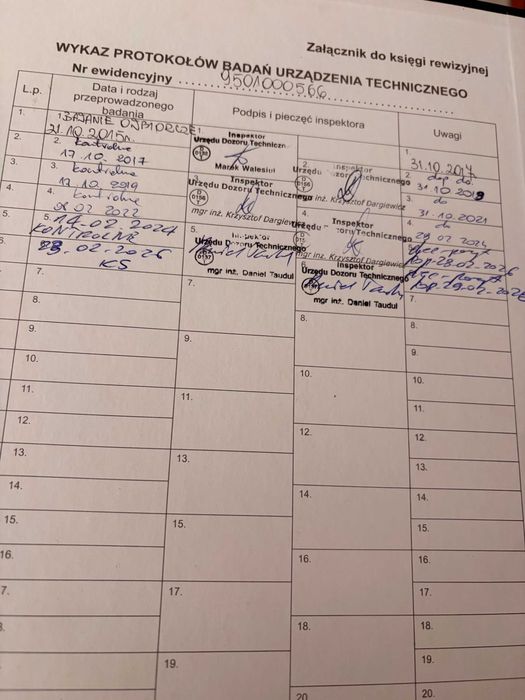 Załącznik do księgi rewizyjnej
WYKAZ PROTOKOŁÓW BADAŃ URZĄDZENIA TECHNICZNEGO
Nr ewidencyjny 9501000566
L.p.
Data i rodzaj przeprowadzonego badania
Podpis i pieczęć inspektora
Uwagi
1.
1. BADANIE ODBIORCZE
21.10.2015r.
1.
Inspektor
Urzędu Dozoru Techniczn
Marek Walesiuk
1.
31.10.2017
2.
2. kontrolne
17.10.2017
2.
Inspektor
Urzędu Dozoru Technicznego
mgr inż. Krzysztof Dargiewicz
2. dop. do
31.10.2019
3.
3. kontrolne
17.10.2019
3.
Inspektor
Urzędu Dozoru Technicznego
mgr inż. Krzysztof Dargiewicz
3. do
31.10.2021
4.
4. kontrolne
02.2022
4.
Inspektor
Dozoru Technicznego
mgr inż. Krzysztof Dargiewicz
4. do
29.02.2024
5.
5. 14.02.2024
KONTROLNE
5.
Inspektor
Urzędu Dozoru Technicznego
mgr inż. Daniel Taudul
28.02.2026
6.
23.02.2026
KS
Inspektor
Urzędu Dozoru Technicznego
mgr inż. Daniel Taudul
7.
7.
7.
8.
8.
8.
9.
9.
9.
10.
10.
10.
11.
11.
11.
12.
12.
12.
13.
13.
13.
14.
14.
14.
15.
15.
15.
16.
16.
16.
7.
17.
17.
18.
18.
19.
19.
20.
20.